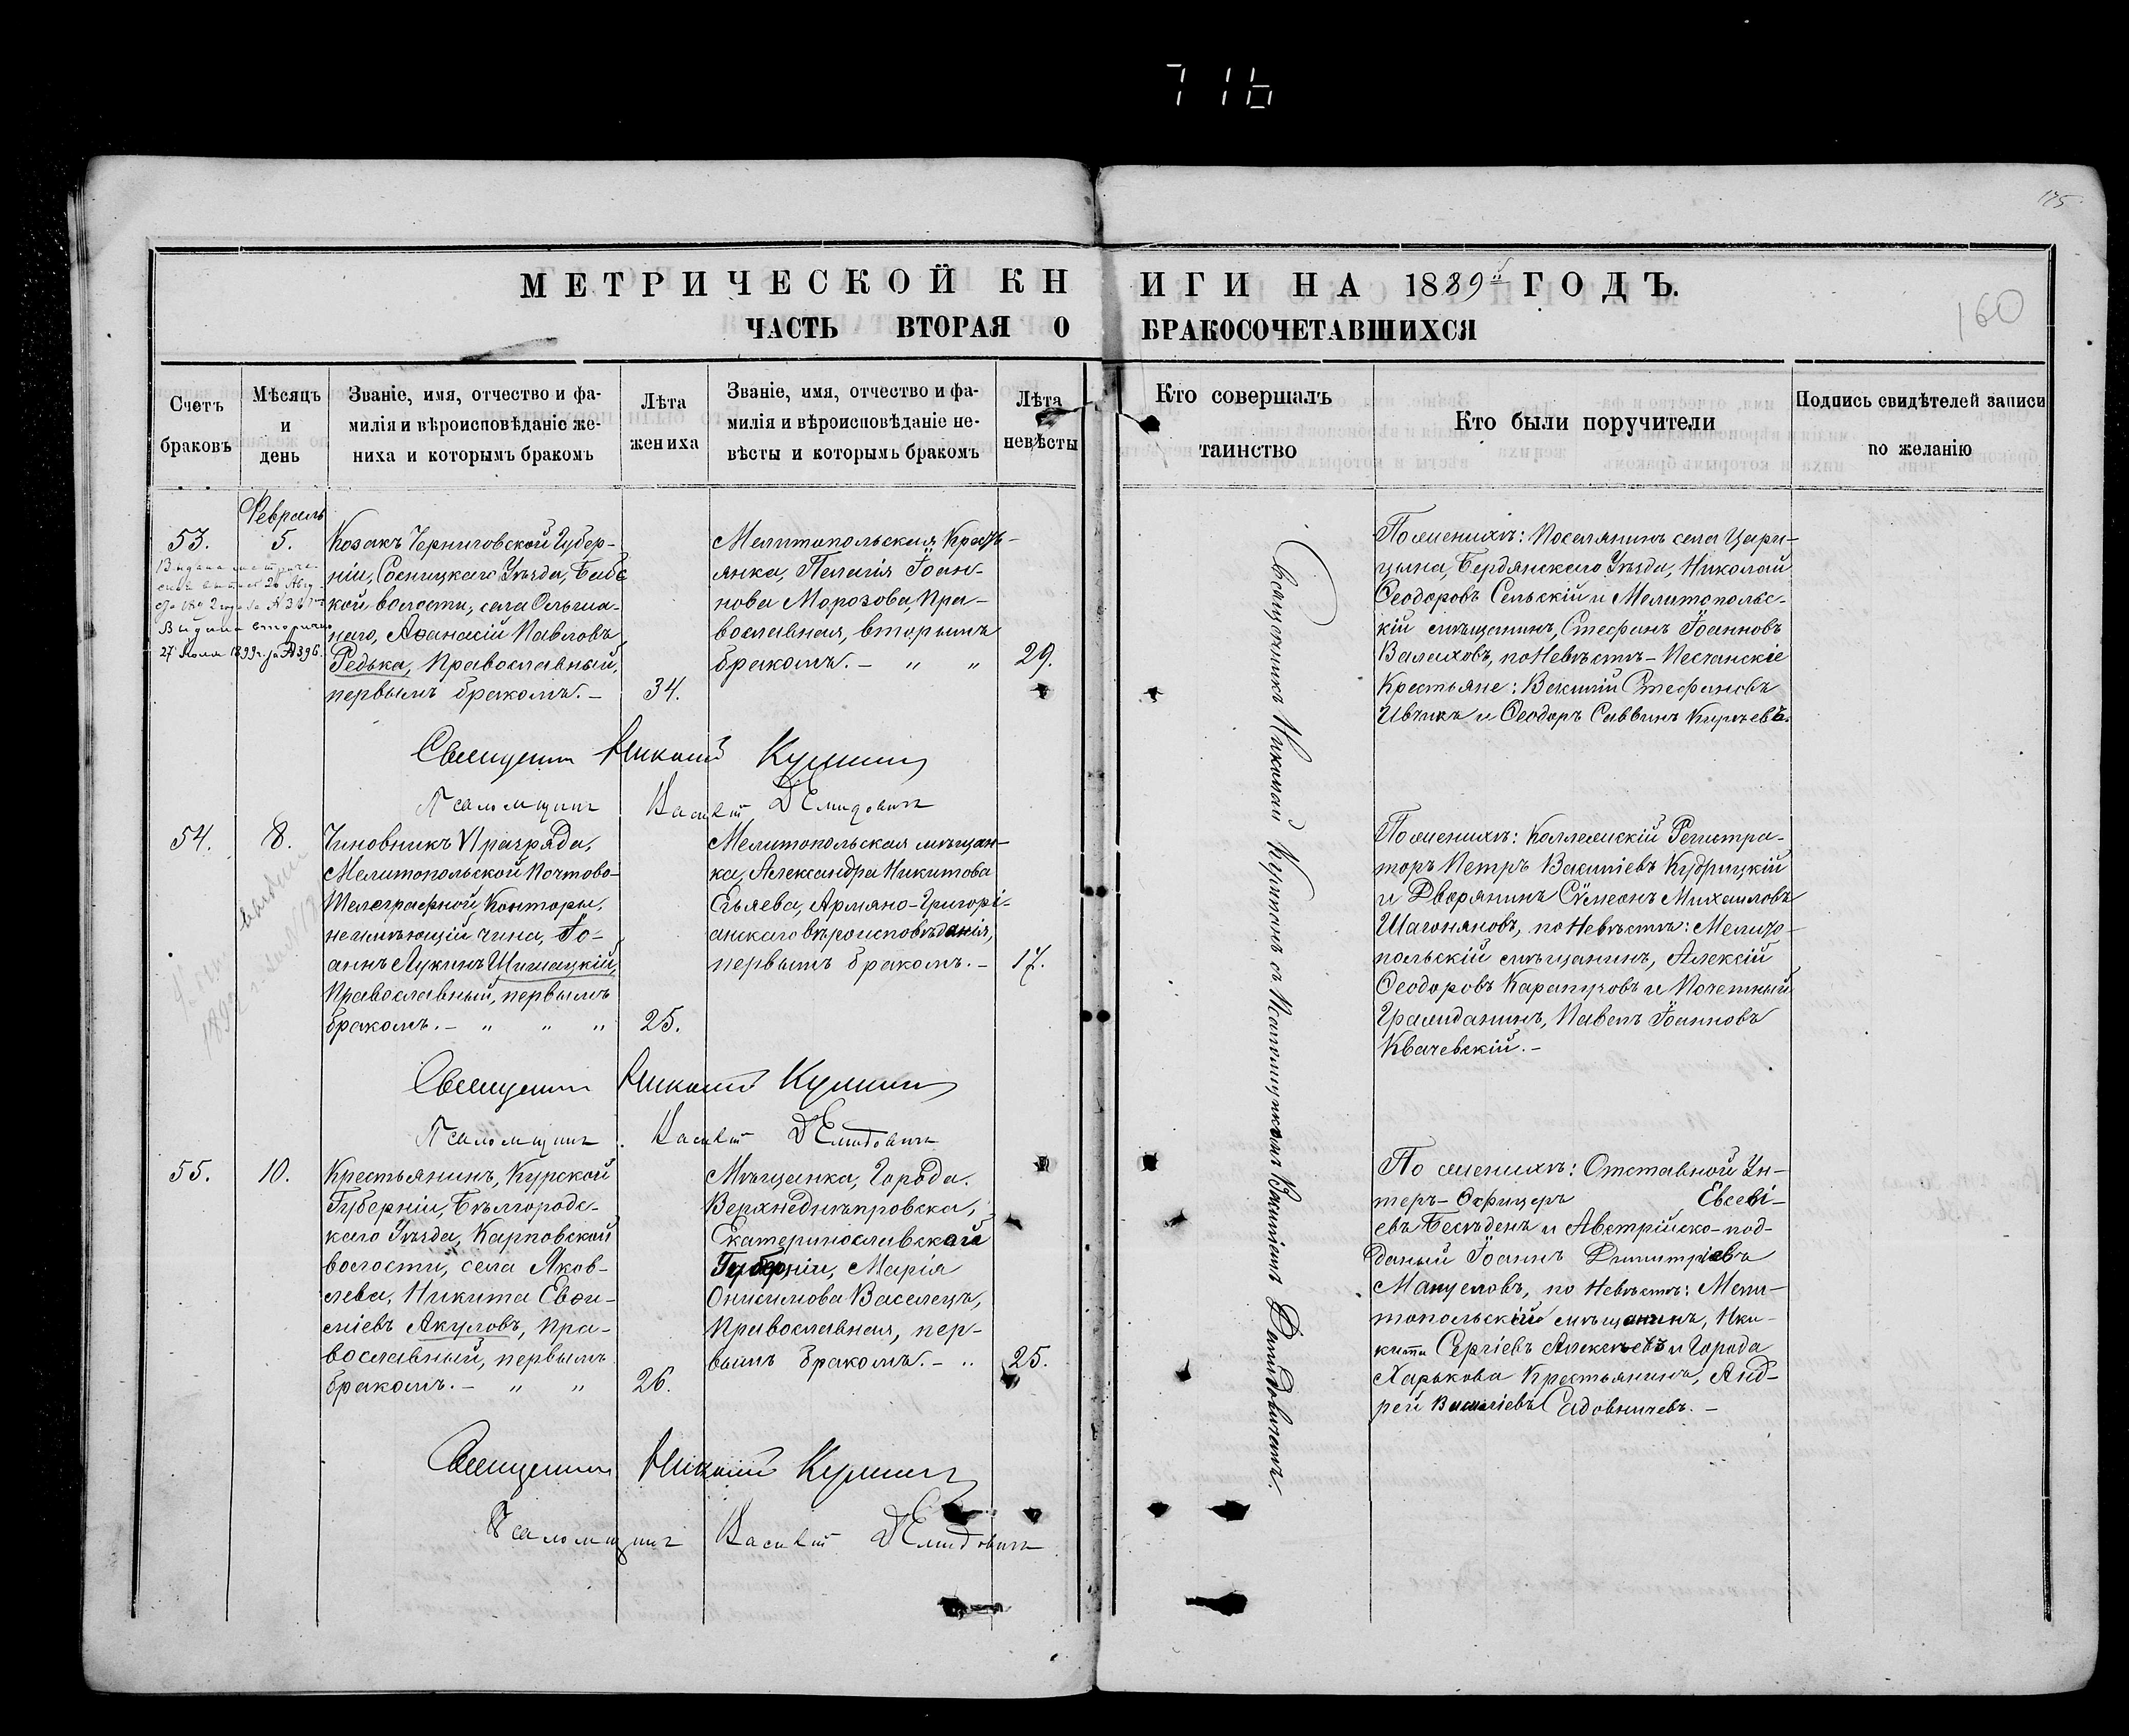 716
175
160
МЕТРИЧЕСКОЙ КНИГИ НА 1889й ГОДЪ.
ЧАСТЬ ВТОРАЯ О БРАКОСОЧЕТАВШИХСЯ
Счетъ браковъ
Мѣсяцъ и день
Званіе, имя, отчество и фа-
милія и вѣроисповѣданіе же-
ниха и которымъ бракомъ
Лѣта жениха
Званіе, имя, отчество и фа-
милія и вѣроисповѣданіе не-
вѣсты и которымъ бракомъ
Лѣта невѣсты
Кто совершалъ таинство
Кто были поручители
Подпись свидѣтелей записи
по желанію
Февраль
53.
5.
Выдана вторично
27 1899 г. за № 396.
Козакъ Черниговской Губер-
ніи, Сосницкаго Уѣзда, Бабс
кой волости, села Ольша-
наго, Аѳанасій Павловъ
Редька, Православный,
первымъ бракомъ. –
34.
Мелитопольская Кресть-
янка, Пелагія Іоан-
нова Морозова, Пра-
вославная, вторымъ
бракомъ. – „ „
29.
По женихѣ: Поселянинъ села Цари-
цына, Бердянскаго Уѣзда, Николай
Ѳеодоровъ Сельскій и Мелитопольс-
кій мѣщанинъ, Стефанъ Іоанновъ
Валиховъ, по Невѣстѣ – Песчанскіе
Крестьяне: Василій Стефановъ
Ивчикъ и Ѳеодоръ Саввинъ Кирѣевъ.
Священникъ Николай
Псаломщикъ Василій Демидовичъ
54.
8.
Чиновникъ VI разряда,
Мелитопольской Почтово-
Телеграфной Конторы,
неимѣющій чина, Іо-
аннъ Лукинъ Шишацкій,
Православный, первымъ
бракомъ. – „ „ „
25.
Мелитопольская мѣщан-
ка, Александра Никитова
Егьяева, Армяно-Григорі-
анскаго вѣроисповѣданія,
первымъ бракомъ. –
17.
По женихѣ: Коллежскій Регистра-
торъ Петръ Василіевъ Кудрицкій
и Дворянинъ Сѵмеонъ Михаиловъ
Шагоняновъ, по Невѣстѣ: Мелито-
польскій мѣщанинъ, Алексій
Ѳеодоровъ Карапузовъ и Почетный
Гражданинъ, Павелъ Іоанновъ
Квачевскій. –
Священникъ Николай
Псаломщикъ Василій Демидовичъ
55.
10.
Крестьянинъ, Курской
Губерніи, Бѣлгородс-
каго Уѣзда, Карповской
волости, села Яков-
лева, Никита Евѳи-
міевъ Акуловъ, Пра-
вославный, первымъ
бракомъ. – „ „
26.
Мѣщанка, Города
Верхнеднѣпровска,
Екатеринославской
Губерніи, Марія
Онисимова Василецъ,
Православная, пер-
вымъ бракомъ. – „
25.
По женихѣ: Отставной Ун-
теръ-Офицеръ Евсеві-
евъ Бесѣденъ и Австрійско-под-
даный Іоаннъ Димитріевъ
Мануеловъ, по Невѣстѣ: Мели-
топольскій мѣщанинъ, Ник-
кита Сергіевъ Алексѣевъ и Города
Харькова Крестьянинъ, Анд-
рей Василіевъ Садовничевъ. –
Священникъ Николай
Псаломщикъ Василій Демидовичъ
Священникъ Николай съ Псаломщикомъ Василіемъ Демидовичемъ.